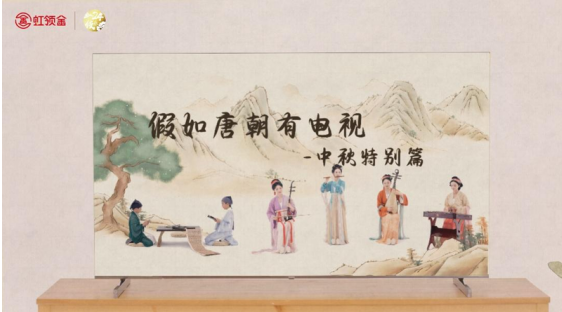 虹领金
假如唐朝有电视
-中秋特别篇